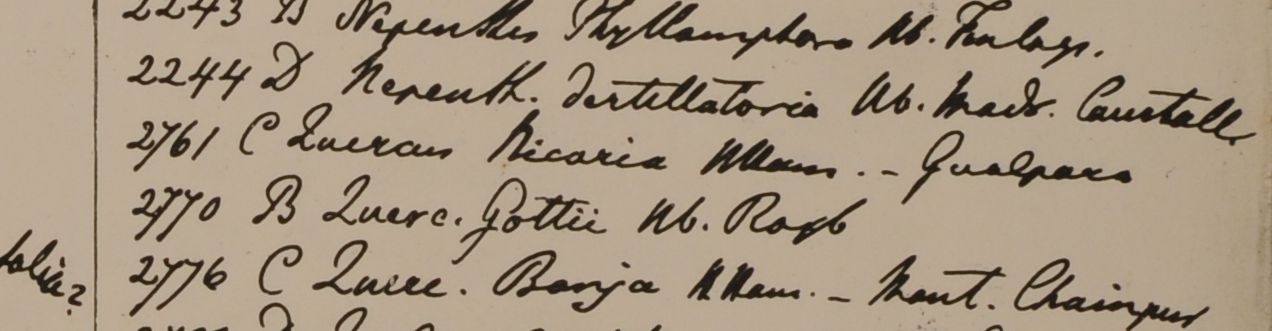 2243 B Nepenthes Phyllamphora Hb. Finlays.
2244 D Nepenth. distillatoria Hb. Madr. Courtall.
2761 C Quercus Hicoria HHam. - Gualpara
2770 B Querc. Gottii Hb. Roxb
folia?
2776 C Querc. Banja HHam. - Mont. Chainpur